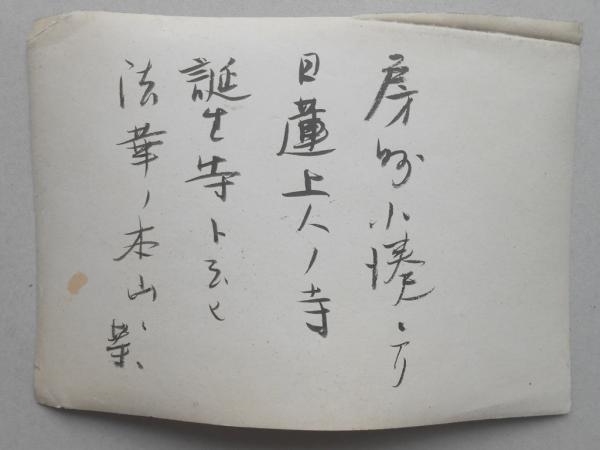 房州小湊ニアリ
日蓮上人ノ寺
誕生寺ト云ヒ
法華ノ本山